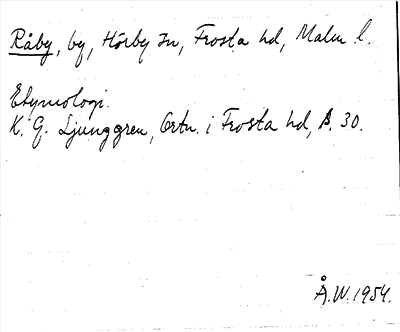 Råby, by, Hörby sn, Frosta hd, Malm. l.
Etymologi.
K. G. Ljunggren, Ortn. i Frosta hd, s. 30.
Å.W. 1954.